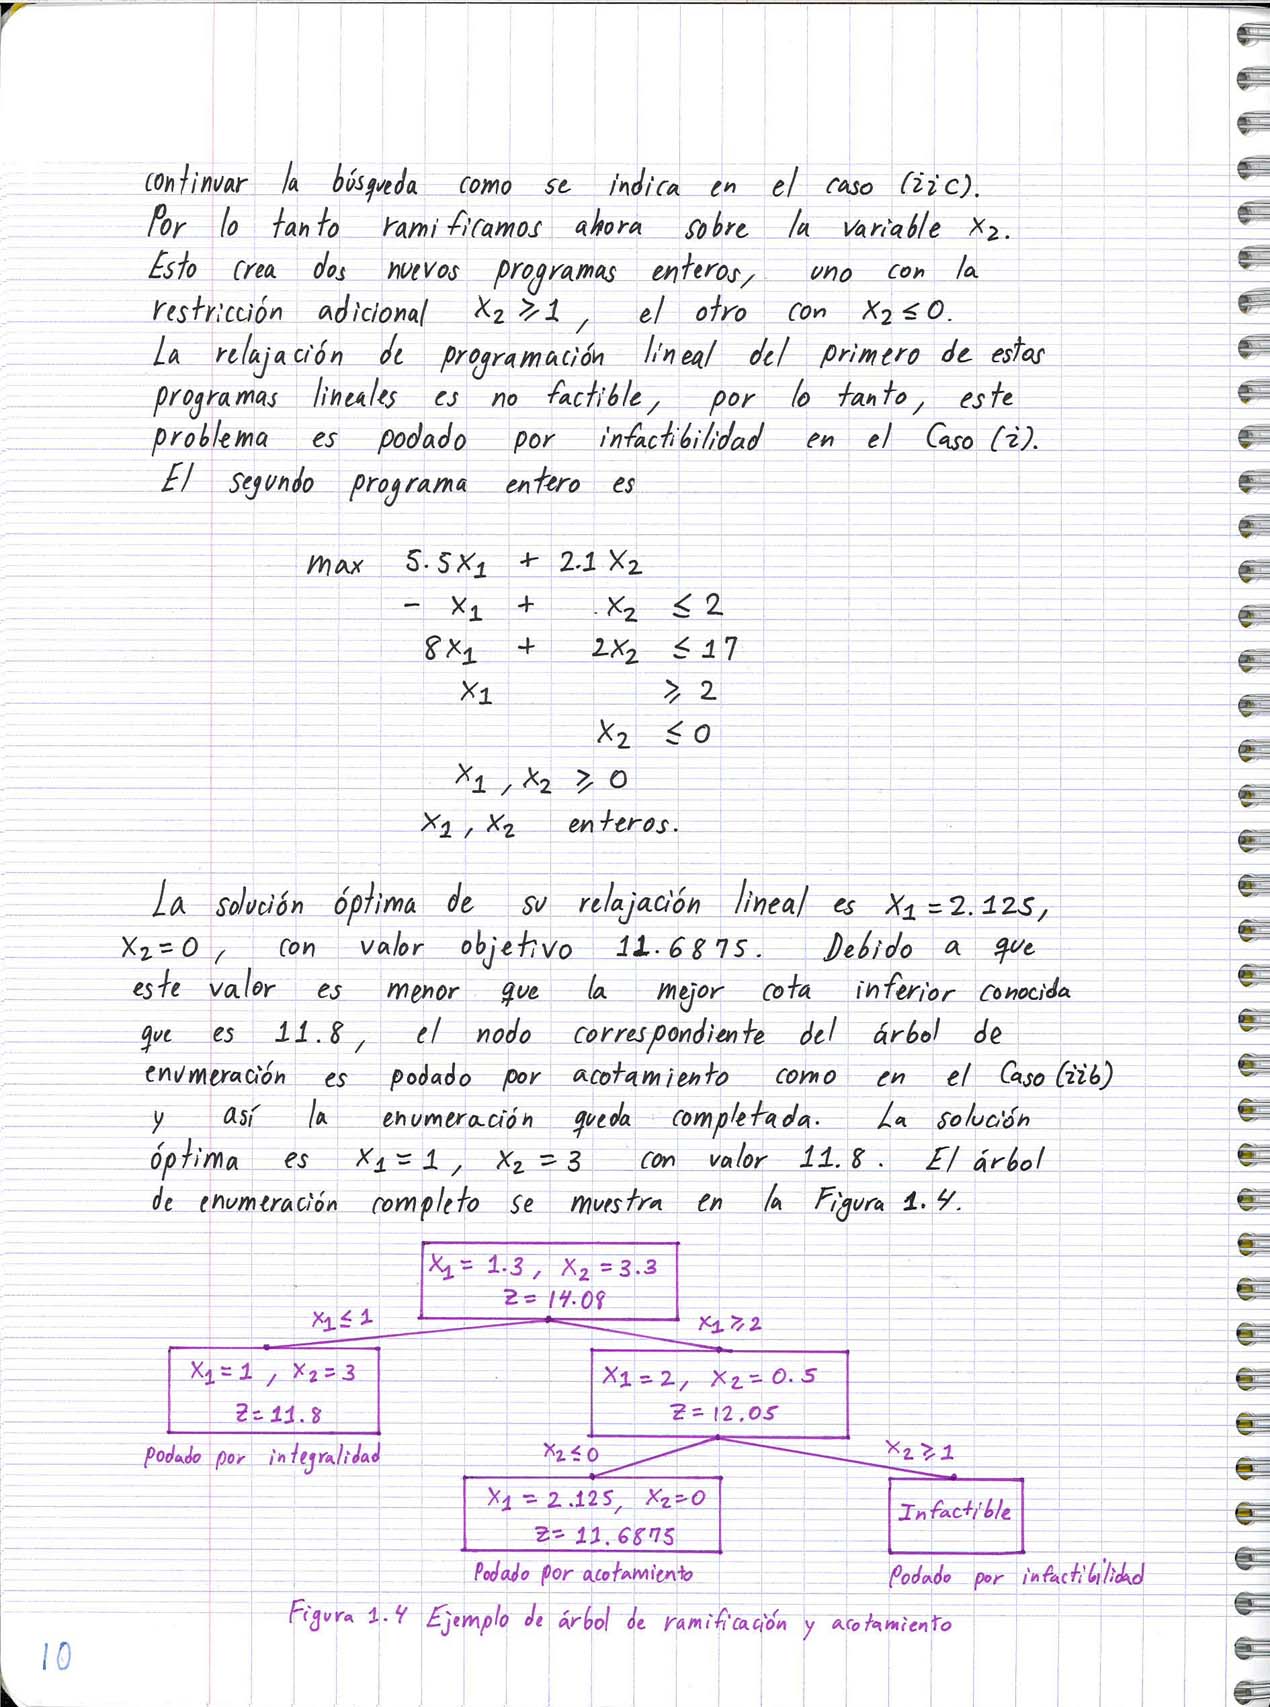 continuar la búsqueda como se indica en el caso (iic).
Por lo tanto ramificamos ahora sobre la variable x₂.
Esto crea dos nuevos programas enteros, uno con la
restricción adicional x₂ ⩾ 1, el otro con x₂ ≤ 0.
La relajación de programación lineal del primero de estos
programas lineales es no factible, por lo tanto, este
problema es podado por infactibilidad en el Caso (i).
El segundo programa entero es
max 5.5x₁ + 2.1x₂
- x₁ + x₂ ≤ 2
8x₁ + 2x₂ ≤ 17
x₁ ⩾ 2
x₂ ≤ 0
x₁, x₂ ⩾ 0
x₁, x₂ enteros.
La solución óptima de su relajación lineal es x₁ = 2.125,
x₂ = 0, con valor objetivo 11.6875. Debido a que
este valor es menor que la mejor cota inferior conocida
que es 11.8, el nodo correspondiente del árbol de
enumeración es podado por acotamiento como en el Caso (iib)
y así la enumeración queda completada. La solución
óptima es x₁ = 1, x₂ = 3 con valor 11.8. El árbol
de enumeración completo se muestra en la Figura 1.4.
x₁ = 1.3, x₂ = 3.3
z = 14.08
x₁ ≤ 1
x₁ ⩾ 2
x₁ = 1, x₂ = 3
z = 11.8
Podado por integralidad
x₁ = 2, x₂ = 0.5
z = 12.05
x₂ ≤ 0
x₂ ⩾ 1
x₁ = 2.125, x₂ = 0
z = 11.6875
Podado por acotamiento
Infactible
Podado por infactibilidad
Figura 1.4 Ejemplo de árbol de ramificación y acotamiento
10